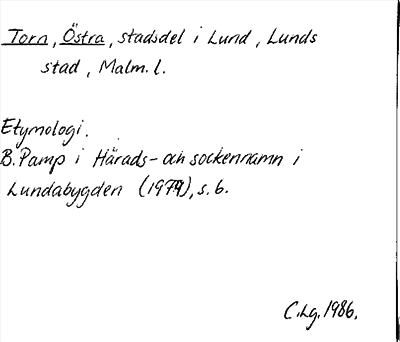 Torn, Östra, stadsdel i Lund, Lunds
stad, Malm. l.
Etymologi.
B. Pamp i Härads- och sockennamn i
Lundabygden (1979), s. 6.
C.Lg. 1986.